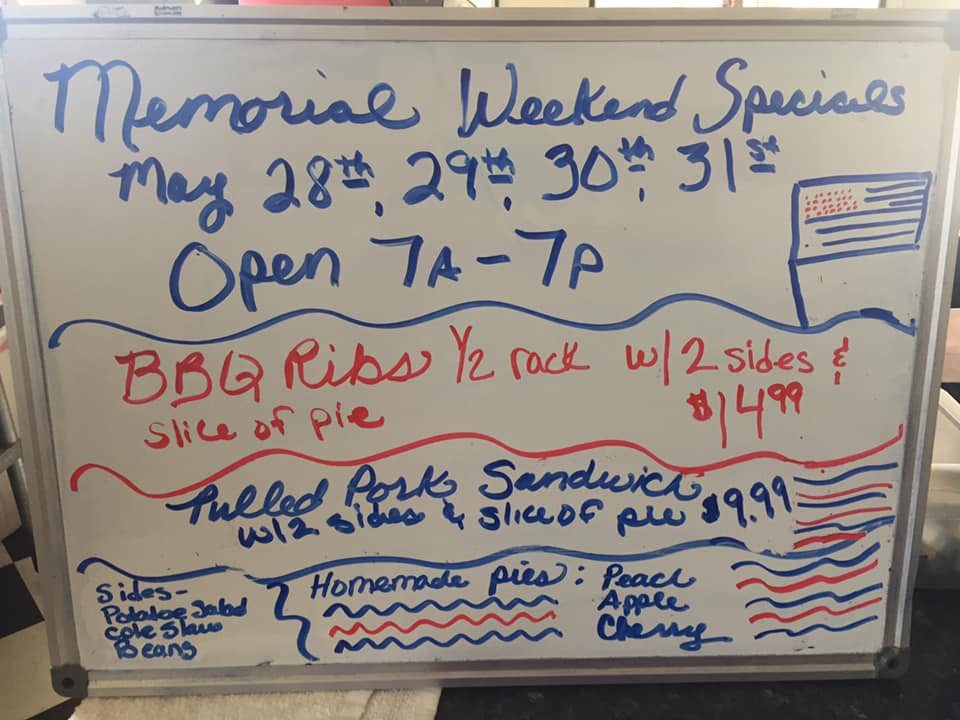 Memorial Weekend Specials
May 28th, 29th, 30th, 31st
Open 7A - 7P
BBQ Ribs 1/2 rack w/2 sides &
slice of pie $14.99
Pulled Pork Sandwich
w/2 sides & slice of pie $9.99
Sides-
Potatoe Salad
Cole Slaw
Beans
Homemade pies: Peach
Apple
Cherry